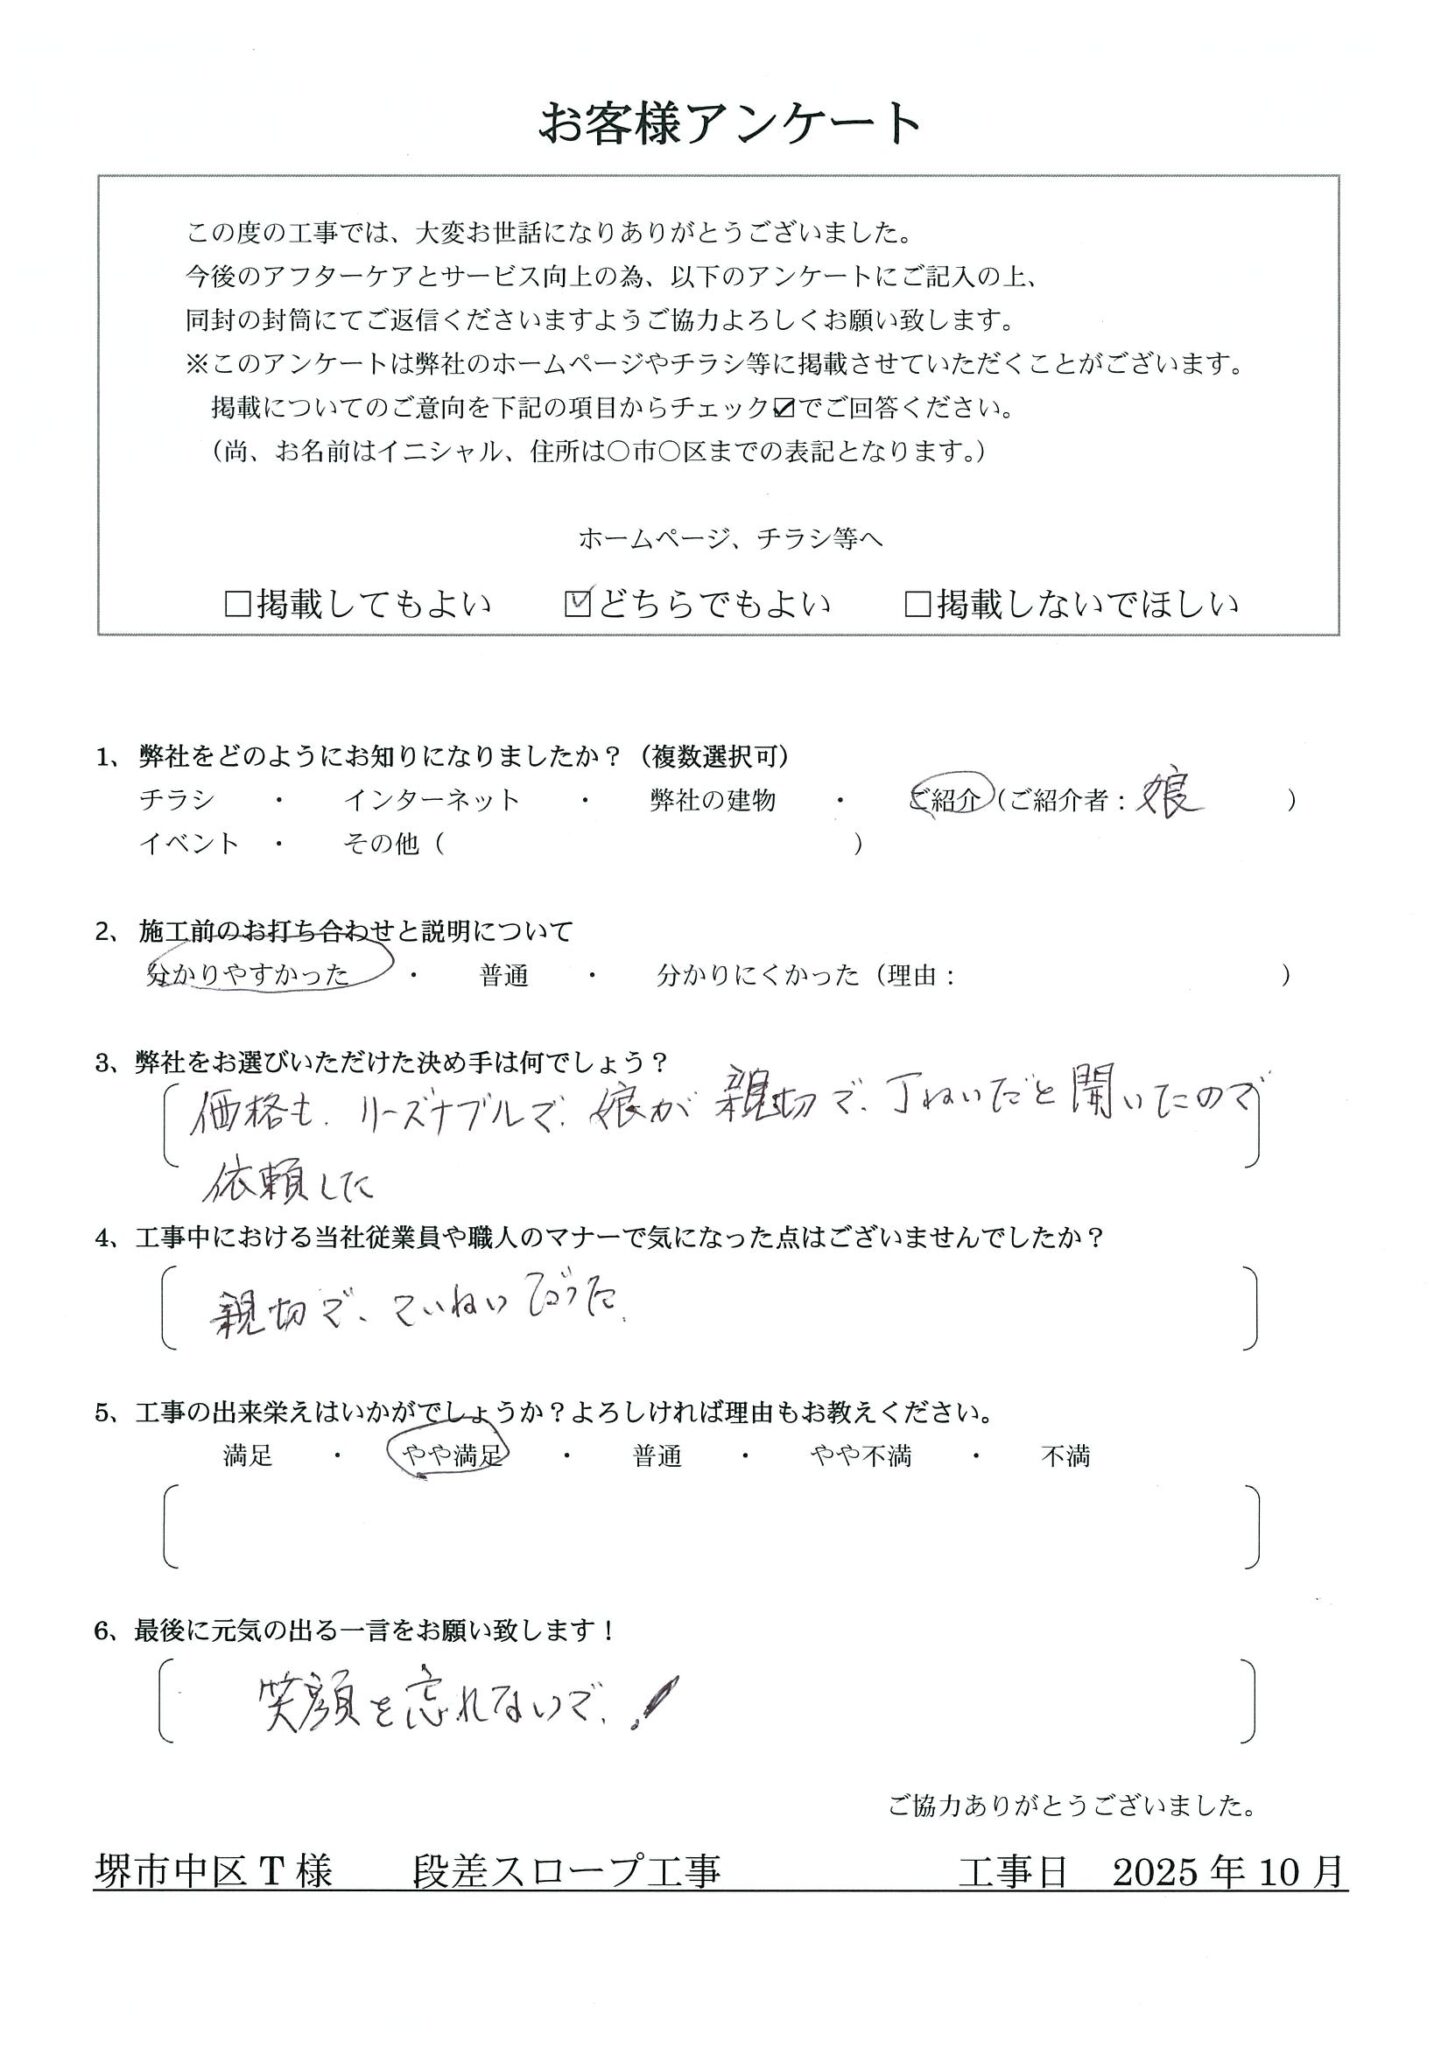 お客様アンケート
この度の工事では、大変お世話になりありがとうございました。
今後のアフターケアとサービス向上の為、以下のアンケートにご記入の上、
同封の封筒にてご返信くださいますようご協力よろしくお願い致します。
※このアンケートは弊社のホームページやチラシ等に掲載させていただくことがございます。
掲載についてのご意向を下記の項目からチェック☑でご回答ください。
（尚、お名前はイニシャル、住所は〇市〇区までの表記となります。）
ホームページ、チラシ等へ
□掲載してもよい ☑どちらでもよい □掲載しないでほしい
1、弊社をどのようにお知りになりましたか？（複数選択可）
チラシ ・ インターネット ・ 弊社の建物 ・ ご紹介（ご紹介者：娘 ）
イベント ・ その他（ ）
2、施工前のお打ち合わせと説明について
分かりやすかった ・ 普通 ・ 分かりにくかった（理由： ）
3、弊社をお選びいただけた決め手は何でしょう？
価格も、リーズナブルで、娘が親切で、丁ねいだと聞いたので
依頼した
4、工事中における当社従業員や職人のマナーで気になった点はございませんでしたか？
親切で、ていねいでした。
5、工事の出来栄えはいかがでしょうか？よろしければ理由もお教えください。
満足 ・ やや満足 ・ 普通 ・ やや不満 ・ 不満
6、最後に元気の出る一言をお願い致します！
笑顔を忘れないで、！
ご協力ありがとうございました。
堺市中区T様 段差スロープ工事 工事日 2025年10月